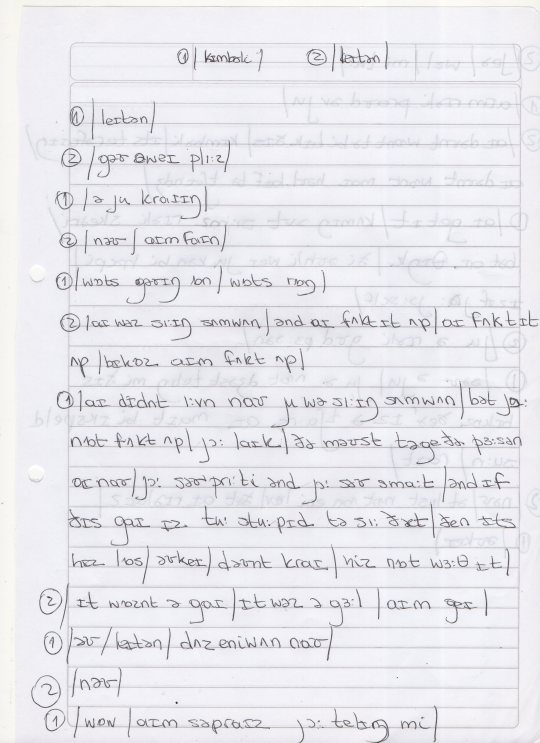 ① /kɪmbəli:/ ② /leɪtən/
① /leɪtən/
② /gəʊ əweɪ pli:z/
① /ə ju kraɪɪŋ/
② /nəʊ/ aɪm faɪn/
① /wɒts gəʊɪŋ ɒn/ wɒts rɒŋ/
② /aɪ wəz si:ɪŋ sʌmwʌn/ ənd aɪ fʌkt ɪt ʌp/ aɪ fʌkt ɪt
ʌp/ bɪkɒz aɪm fʌkt ʌp/
① /aɪ dɪdnt i:vn nəʊ ju wə si:ɪŋ sʌmwʌn/ bət jɔ:
nɒt fʌkt ʌp/ jɔ: laɪk/ ðə məʊst təgeðə pɜ:sən
aɪ nəʊ/ jɔ: səʊ prɪti ənd jɔ: səʊ smɑ:t/ ənd ɪf
ðɪs gaɪ ɪz tu: stu:pɪd tə si: ðæt/ ðen ɪts
hɪz lɒs/ əʊkeɪ/ dəʊnt kraɪ/ hiz nɒt wɜ:θ ɪt/
② /ɪt wɒznt ə gaɪ/ ɪt wəz ə gɜ:l/ aɪm geɪ/
① /əʊ/ leɪtən/ dʌz eniwʌn nəʊ/
② /nəʊ/
① /waʊ/ aɪm səpraɪz jɔ: telɪŋ mi/